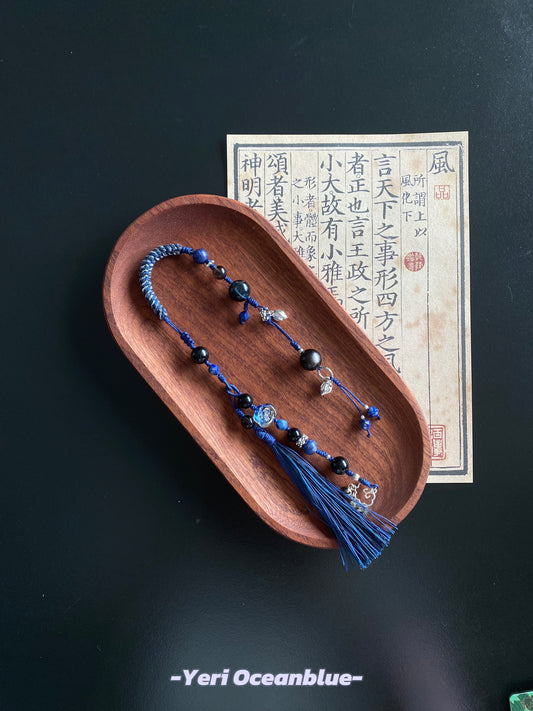 風
所謂上以
風化下
言天下之事形四方之風
者正也言王政之所
小大故有小雅焉
形者體而象
之小事大雅
頌者美
神明者
-Yeri Oceanblue-